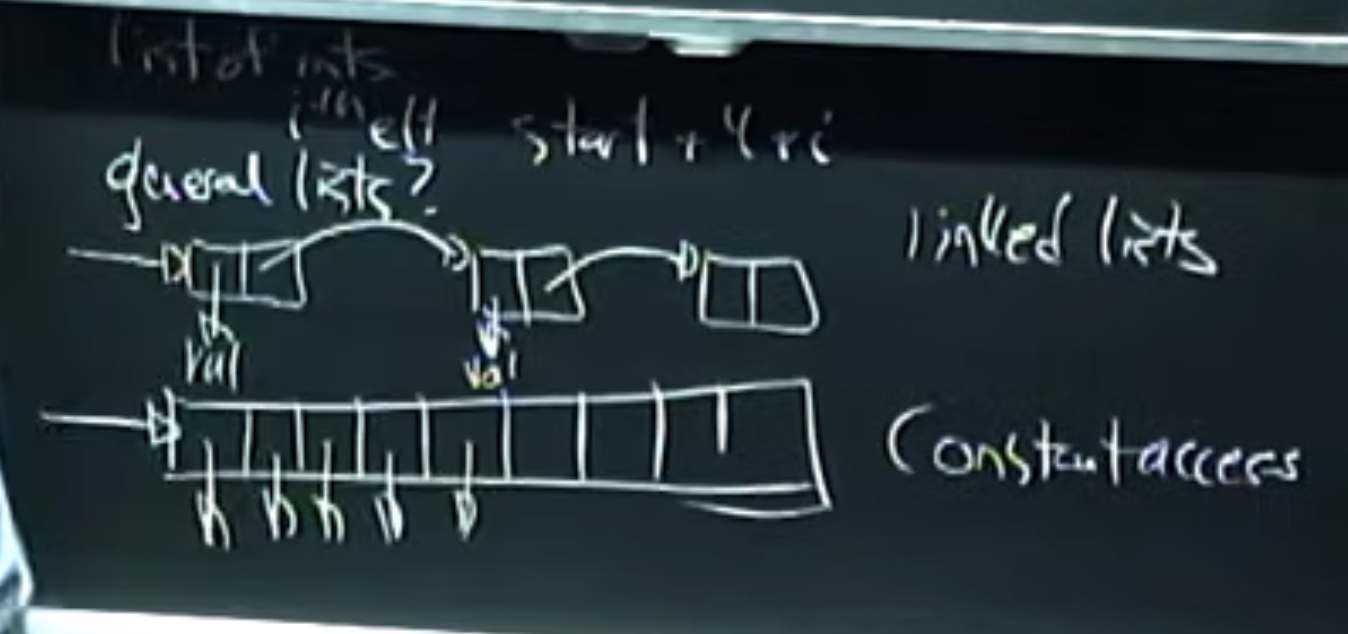 list of ints
ith elt start + 4 * i
general lists?
linked lists
val val
Constant access